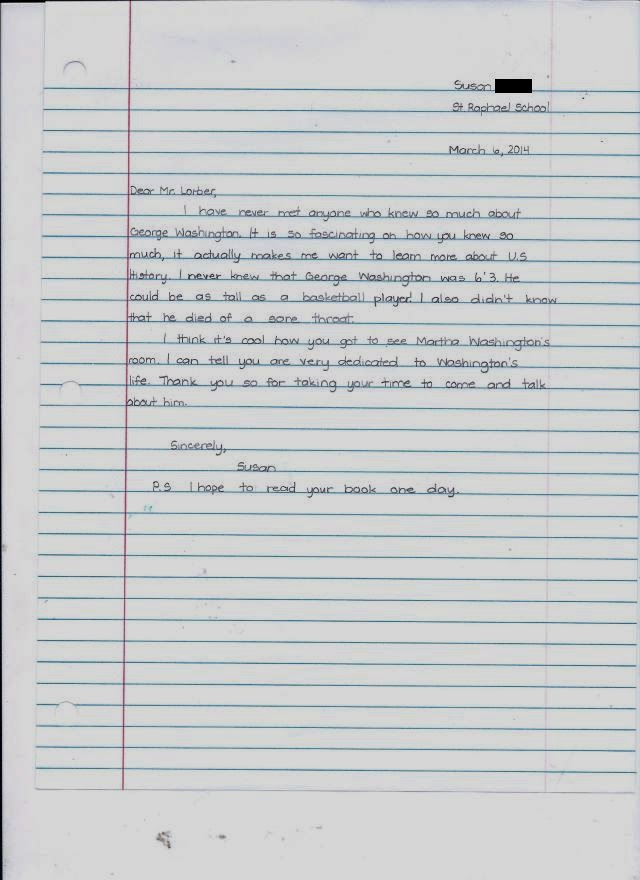 Susan
St Raphael School
March 6, 2014
Dear Mr. Lorber,
I have never met anyone who knew so much about
George Washington. It is so fascinating on how you knew so
much, it actually makes me want to learn more about U.S
History. I never knew that George Washington was 6'3. He
could be as tall as a basketball player! I also didn't know
that he died of a sore throat.
I think it's cool how you got to see Martha Washington's
room. I can tell you are very dedicated to Washington's
life. Thank you so for taking your time to come and talk
about him.
Sincerely,
Susan
P.S I hope to read your book one day.